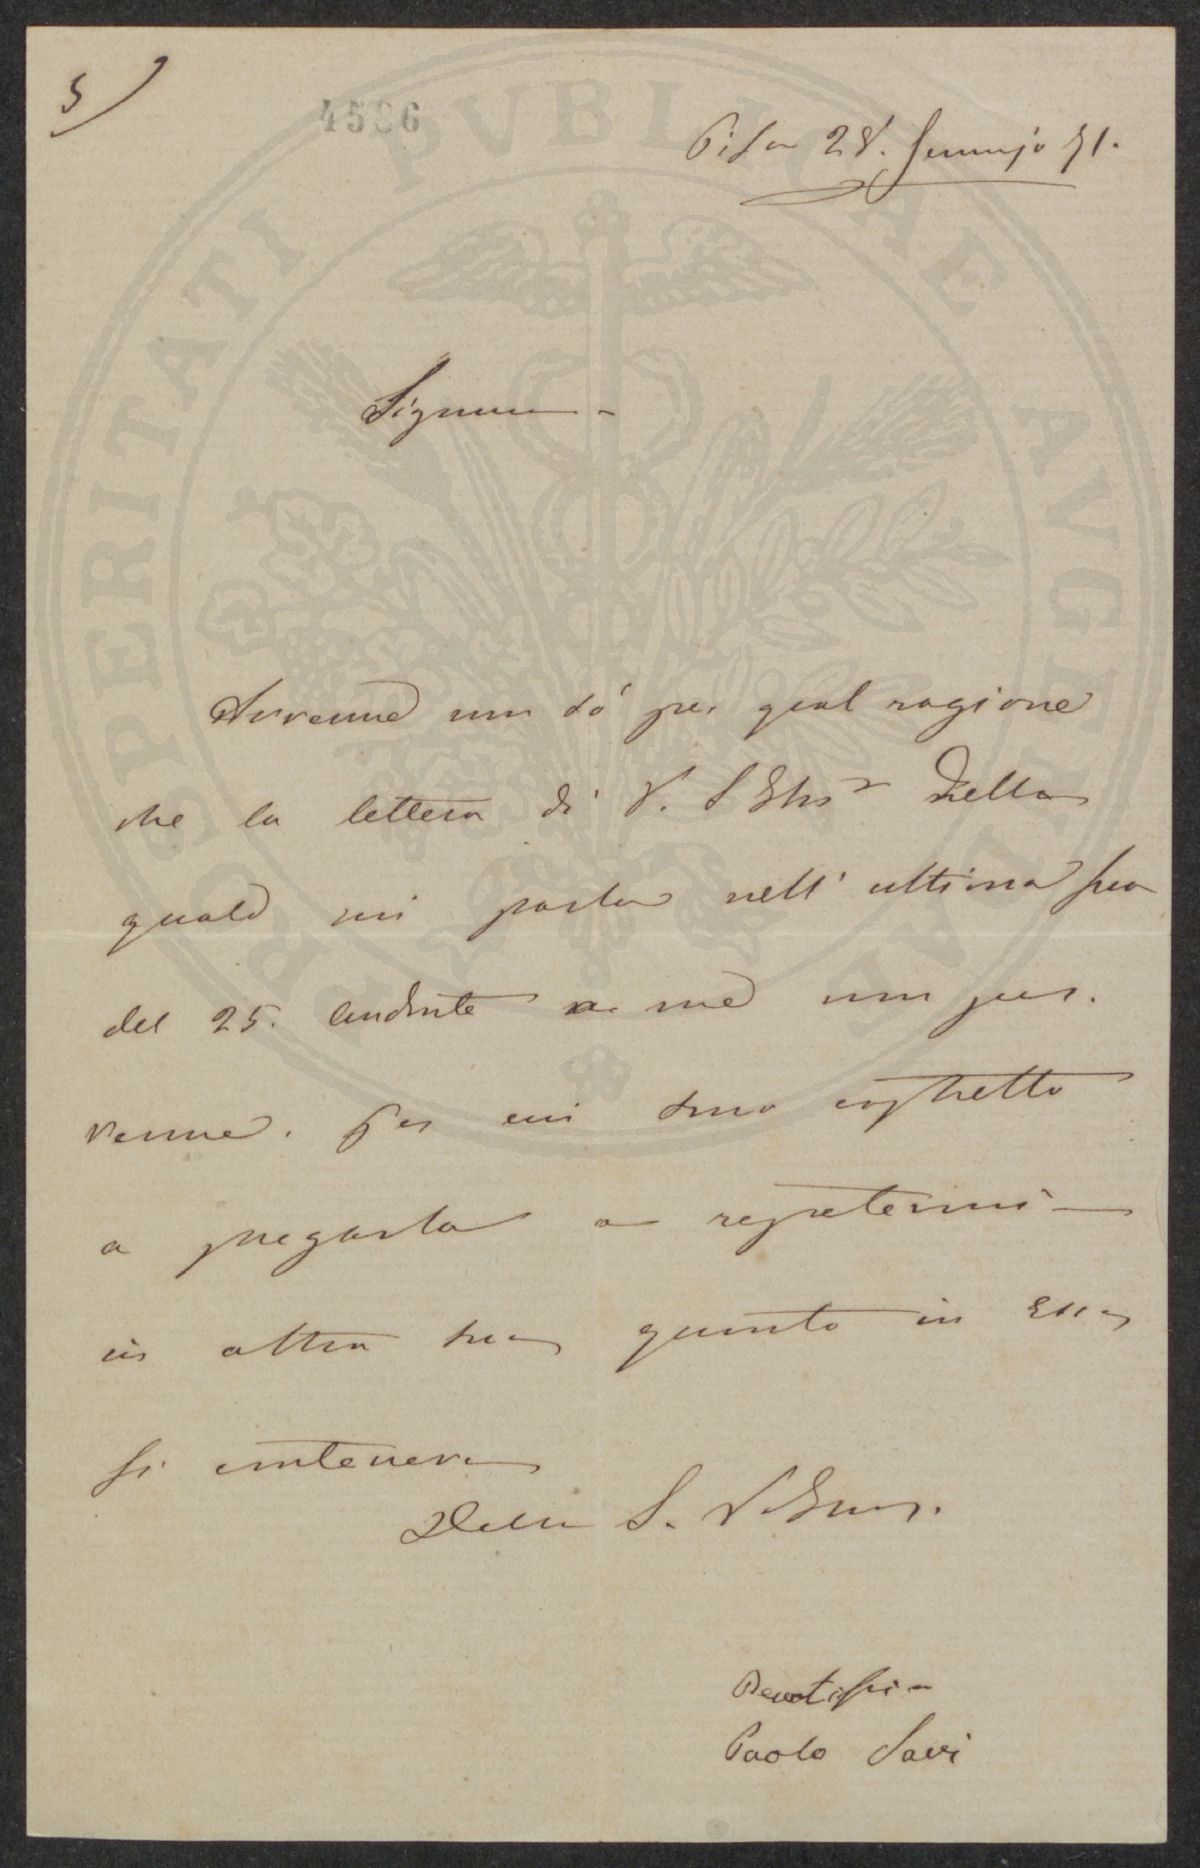 5)
4536
Pisa 28. Gennajo 51.
Signore
Avvenne non sò per qual ragione
che la lettera di V. S Ill.ma della
quale mi parla nell' ultima sua
del 25. andante a me non per.
venne. Per cui sono costretto
a pregarla a repetermi
in altra sua quanto in Essa
si conteneva
Della S. V.
Devotissi
Paolo Savi
PROSPERITATI PVBLICAE AVGENDAE